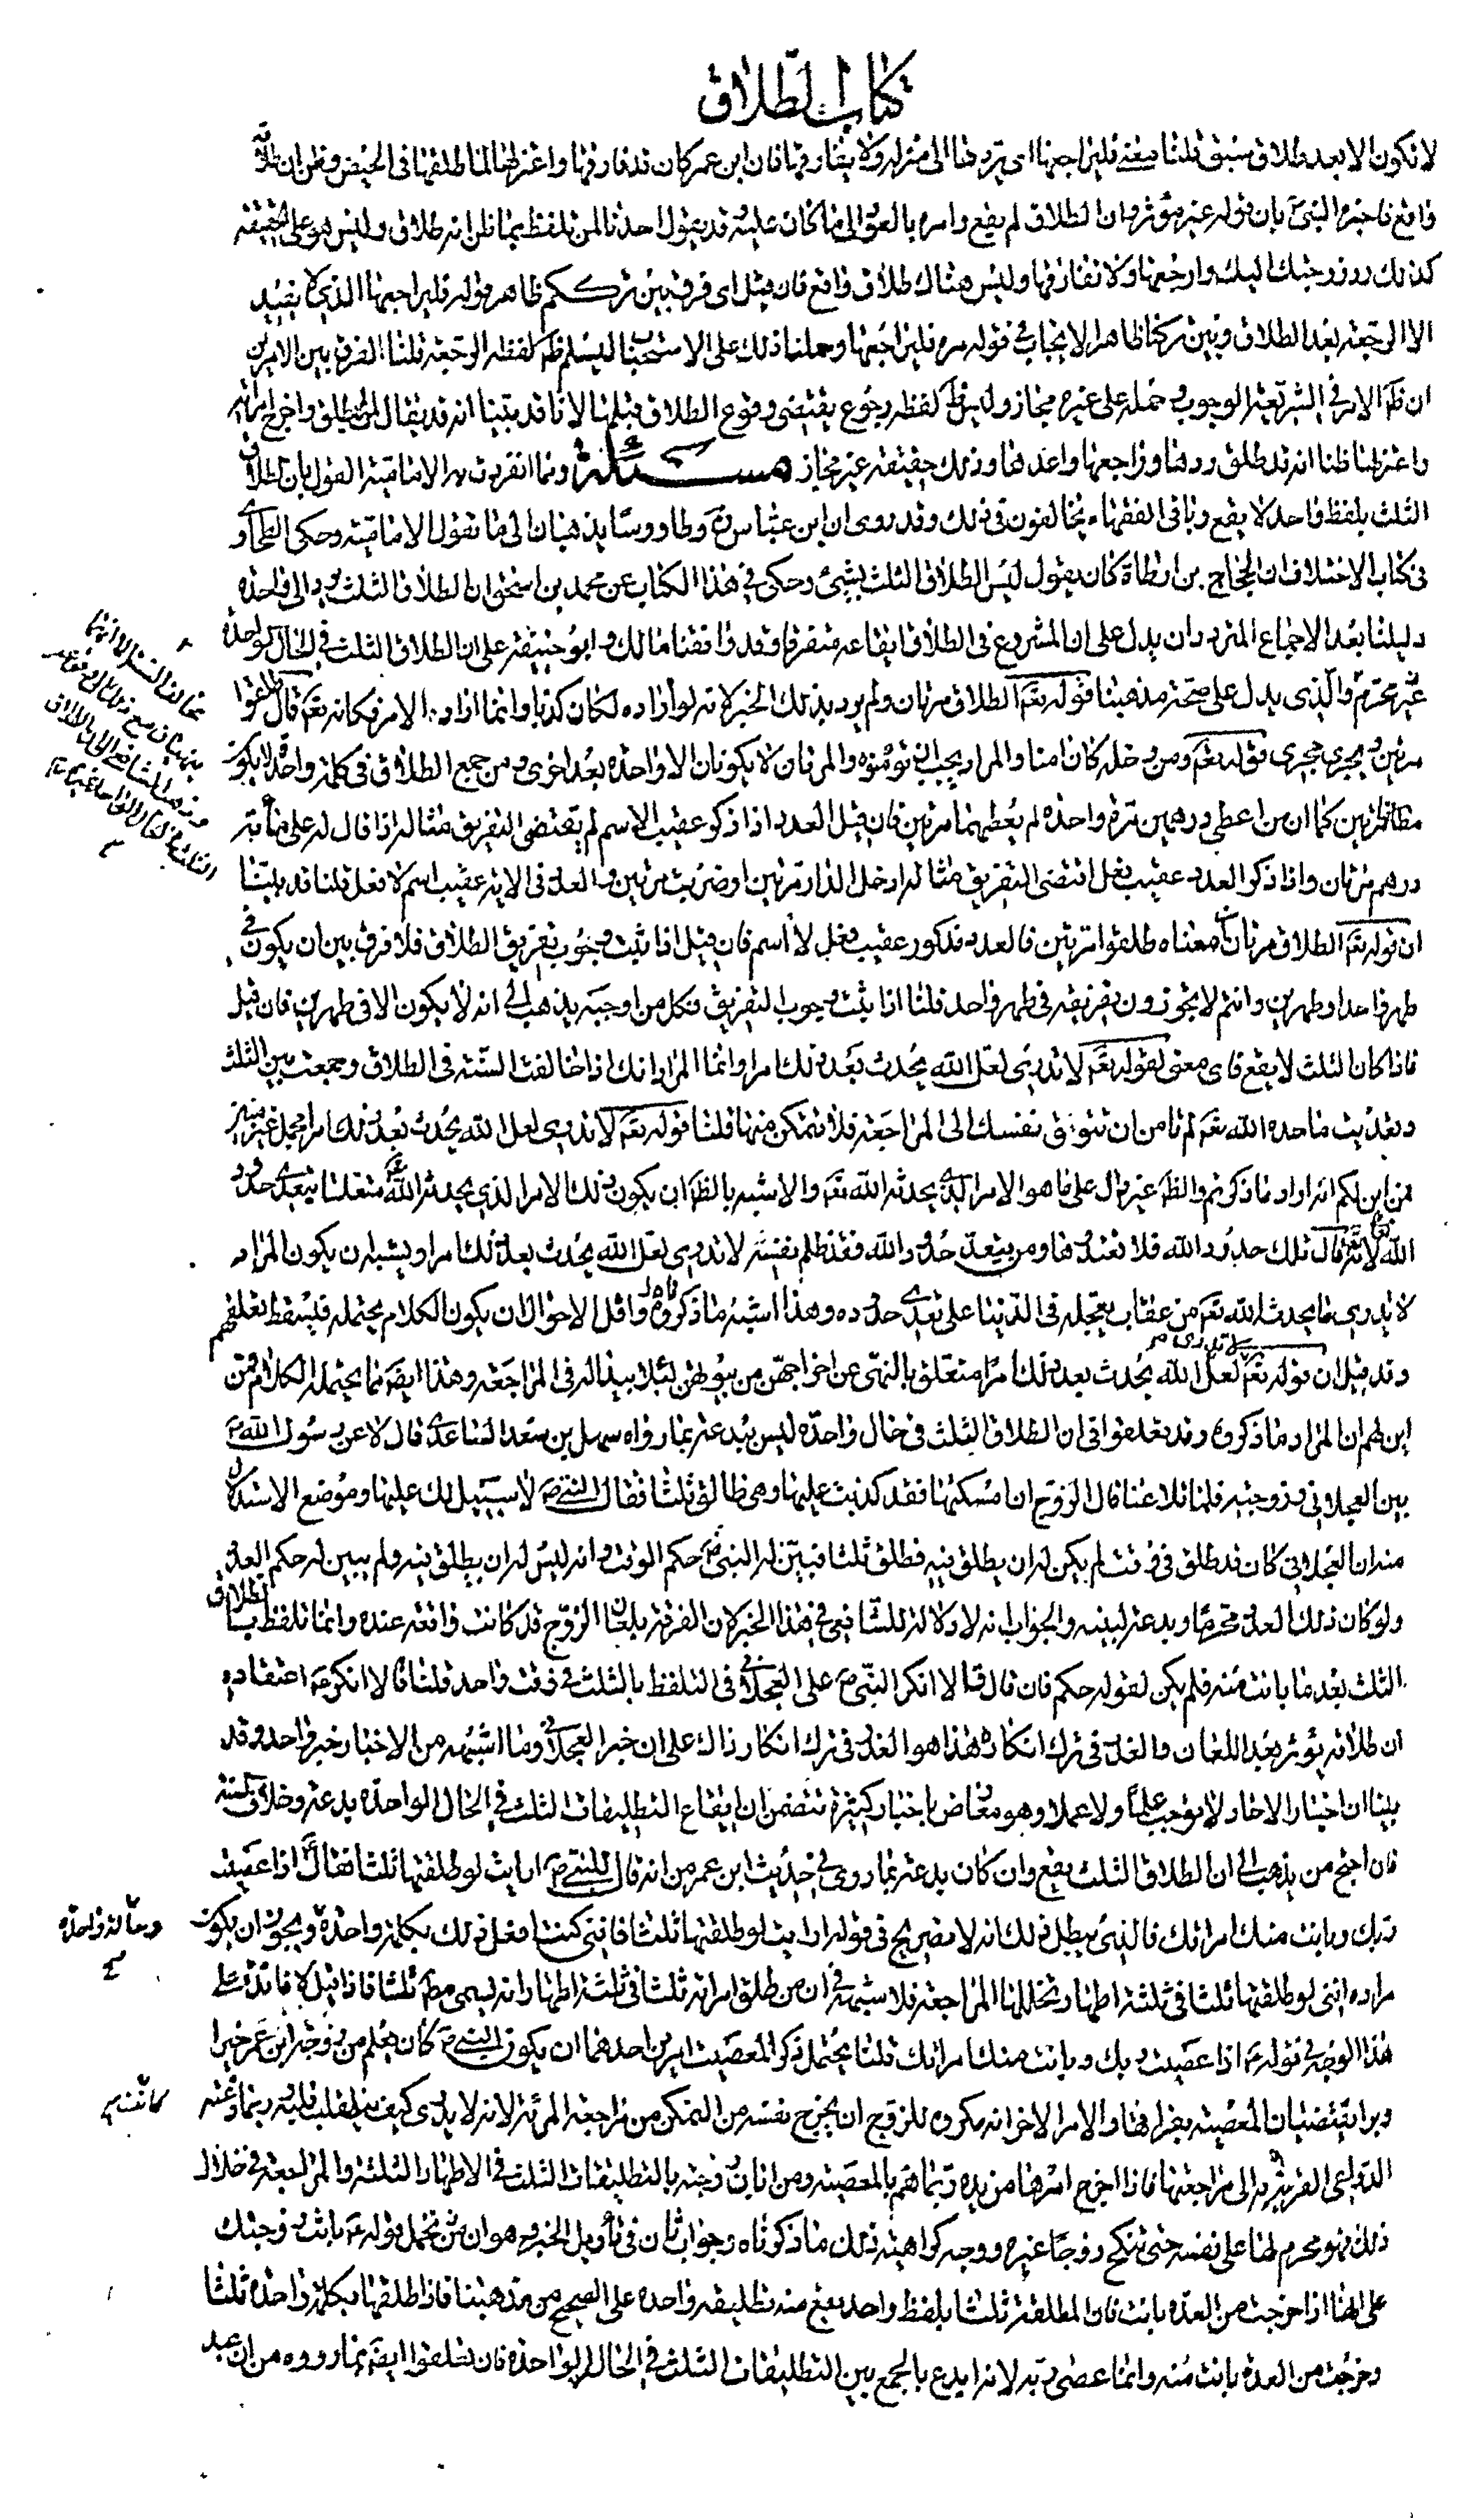 كتاب الطلاق
لا تكون الا بعد طلاق سبق قلنا معنى فليراجعها اى يردها الى منزله ولا يفارقها فان ابن عمر كان قد فارقها واعتزلها لما طلقها فى الحيض وظن ان طلاقه
واقع فاخبره النبى بان قوله غير مؤثر وان الطلاق لم يقع وامره بالعود الى ما كان عليه وقد يقول احدنا لمن تلفظ بما ظن انه طلاق وليس هو على الحقيقة
كذلك رد زوجتك اليك وارجعها ولا تفارقها وليس هناك طلاق واقع فان قيل اى فرق بين ترككم ظاهر قوله فليراجعها الذى لا يفيد
الا الرجعة بعد الطلاق وبين تركنا ظاهر الايجاب فى قوله مره فليراجعها وحملنا ذلك على الاستحباب ليسلم ظ لفظه الرجعة قلنا الفرق بين الامرين
ان ظ الامر فى الشريعة الوجوب وحمله على غيره مجاز وليس ظ لفظه رجوع يقتضى وقوع الطلاق قبلها لانا قد بينا انه قد يقال لمن لم يطلق واخرج امراته
واعتزلها ظنا انه قد طلق ردها وراجعها واعدها وذلك حقيقة غير مجاز مسئلة ومما انفردت به الامامية القول بان الطلاق
الثلث بلفظ واحد لا يقع وباقى الفقهاء يخالفون فى ذلك وقد روى ان ابن عباس ره وطاووسا يذهبان الى ما تقول الامامية وحكى الطحاوى
فى كتاب الاختلاف ان الحجاج بن ارطاة كان يقول ليس الطلاق الثلث بشئ وحكى فى هذا الكتاب عن محمد بن اسحق ان الطلاق الثلث يرد الى واحدة
دليلنا بعد الاجماع المتردد ان يدل على ان المشروع فى الطلاق ايقاعه متفرقا وقد وافقنا مالك وابو حنيفة على ان الطلاق الثلث فى الحال الواحدة
غير محرم والذى يدل على صحة مذهبنا قوله تع الطلاق مرتان ولم يرد بذلك الخبر لانه لو اراده لكان كذبا وانما اراد الامر فكانه تع قال طلقوا
مرتين ويجرى مجرى قوله تع ومن دخله كان امنا والمراد يجب ان تؤمنوه والمرتان لا يكونان الا واحدة بعد اخرى ومن جمع الطلاق فى كلمة واحدة لا يكون
مطلقا مرتين كما ان من اعطى درهمين مرة واحدة لم يعطهما مرتين فان قيل العدد اذا ذكر عقيب الاسم لم يقتض التفريق مثاله اذا قال له على مائة
درهم مرتان واذا ذكر العدد عقيب فعل اقتضى التفريق مثاله ادخل الدار مرتين او ضربت مرتين والعدد فى الاية عقيب اسم لا فعل قلنا قد بينا
ان قوله تع الطلاق مرتان معناه طلقوا مرتين فالعدد مذكور عقيب فعل لا اسم فان قيل اذا ثبت وجوب تفريق الطلاق فلا فرق بين ان يكون فى
طهر واحد او طهرين وانتم لا تجوزون تفريقه فى طهر واحد قلنا اذا ثبت وجوب التفريق فكل من اوجبه يذهب الى انه لا يكون الا فى طهرين فان قيل
فاذا كان الثلث لا يقع فاى معنى لقوله تع لا تدرى لعل الله يحدث بعد ذلك امرا وانما المراد انك اذا خالفت السنة فى الطلاق وجمعت بين الثلث
وتعديت ما حده الله تع لم تامن ان تتوق نفسك الى المراجعة فلا تتمكن منها قلنا قوله تع لا تدرى لعل الله يحدث بعد ذلك امرا مجمل غير مبين
فمن اين لكم انه اراد ما ذكرتم والظ غير دال على ما هو الامر الذى يحدثه الله تع والاشبه بالظ ان يكون ذلك الامر الذى يحدثه الله تع متعلقا بتعدى حدود
الله لانه تع قال تلك حدود الله فلا تعتدوها ومن يتعد حدود الله فقد ظلم نفسه لا تدرى لعل الله يحدث بعد ذلك امرا ويشبه ان يكون المراد
لا تدرى ما يحدث الله تع من عقاب يعجله فى الدنيا على تعدى حدوده وهذا اشبه مما ذكروه واقل الاحوال ان يكون الكلام يحتمله فيسقط تعلقهم
وقد قيل ان قوله تع لا تدرى لعل الله يحدث بعد ذلك امرا متعلق بالنهى عن اخراجهن من بيوتهن لئلا يبدو له فى المراجعة وهذا ايضا مما يحتمله الكلام فمن
اين لهم ان المراد ما ذكروه وقد تعلقوا فى ان الطلاق الثلث فى حال واحدة ليس ببدعة بما رواه سهل بن سعد الساعدى قال لاعن رسول الله ص
بين العجلانى وزوجته فلما تلاعنا قال الزوج ان امسكتها فقد كذبت عليها وهى طالق ثلثا فقال النبى ص لا سبيل لك عليها وموضع الاستدلال
منه ان العجلانى كان قد طلق فى وقت لم يكن له ان يطلق فيه فطلق ثلثا فبين له النبى ص حكم الوقت وانه ليس له ان يطلق فيه ولم يبين له حكم العدد
ولو كان ذلك العدد محرما وبدعة لبينه والجواب انه لا دلالة للشافعى فى هذا الخبر لان الفرقة بلعان الزوج قد كانت واقعة عنده وانما تلفظ بالطلاق
الثلث بعد ما بانت منه فلم يكن لقوله حكم فان قال فالا انكر النبى ص على العجلانى فى التلفظ بالثلث فى وقت واحد قلنا فالا انكر ع اعتقاده
ان طلاقه يؤثر بعد اللعان والعذر فى ترك انكاره هذا هو العذر فى ترك انكار ذاك على ان خبر العجلانى وما اشبهه من الاخبار خبر واحد وقد
بينا ان اخبار الاحاد لا توجب علما ولا عملا وهو معارض باخبار كثيرة تتضمن ان ايقاع التطليقات الثلث فى الحال الواحدة بدعة وخلاف السنة
فان احتج من يذهب الى ان الطلاق الثلث يقع وان كان بدعة بما روى فى حديث ابن عمر من انه قال للنبى ص ارايت لو طلقتها ثلثا فقال اذا عصيت
ربك وبانت منك امراتك فالذى يبطل ذلك انه لا تصريح فى قوله ارايت لو طلقتها ثلثا فانى كنت افعل ذلك بكلمة واحدة ويجوز ان يكون
مراده اننى لو طلقتها ثلثا فى ثلثة اطهار تخللها المراجعة فلا شبهة فى ان من طلق امراته ثلثا فى ثلثة اطهار انه يسمى مطلقا ثلثا فاذا قيل لا فائدة على
هذا الوجه فى قوله ع اذا عصيت ربك وبانت منك امراتك قلنا يحتمل ذكر المعصية امرين احدهما ان يكون النبى ص كان يعلم من زوجة ابن عمر خيرا
وبرا يقتضيان المعصية بفراقها والامر الاخر انه مكروه للزوج ان يخرج نفسه من التمكن من مراجعة المرءة لانه لا يدرى كيف ينقلب قلبه وربما دعته
الدواعى القوية الى مراجعتها فاذا اخرج امرها من يده ربما هم بالمعصية ومن ابان زوجته بالتطليقات الثلث فى الاطهار الثلثة والمراجعة فى خلال
ذلك فهو محرم لها على نفسه حتى تنكح زوجا غيره ووجه كراهية ذلك ما ذكرناه وجواب ثان فى تأويل الخبر وهو ان نحمل قوله ع بانت زوجتك
على انها اذا خرجت من العدة بانت فان المطلقة ثلثا بلفظ واحد يقع منه تطليقة واحدة على الصحيح من مذهبنا فاذا طلقها بكلمة واحدة ثلثا
وخرجت من العدة بانت منه وانما عصى ربه لانه ابدع بالجمع بين التطليقات الثلث فى الحال الواحدة فان تعلقوا ايضا بما رووه من ان عبد
وحالة واحدة
كانت